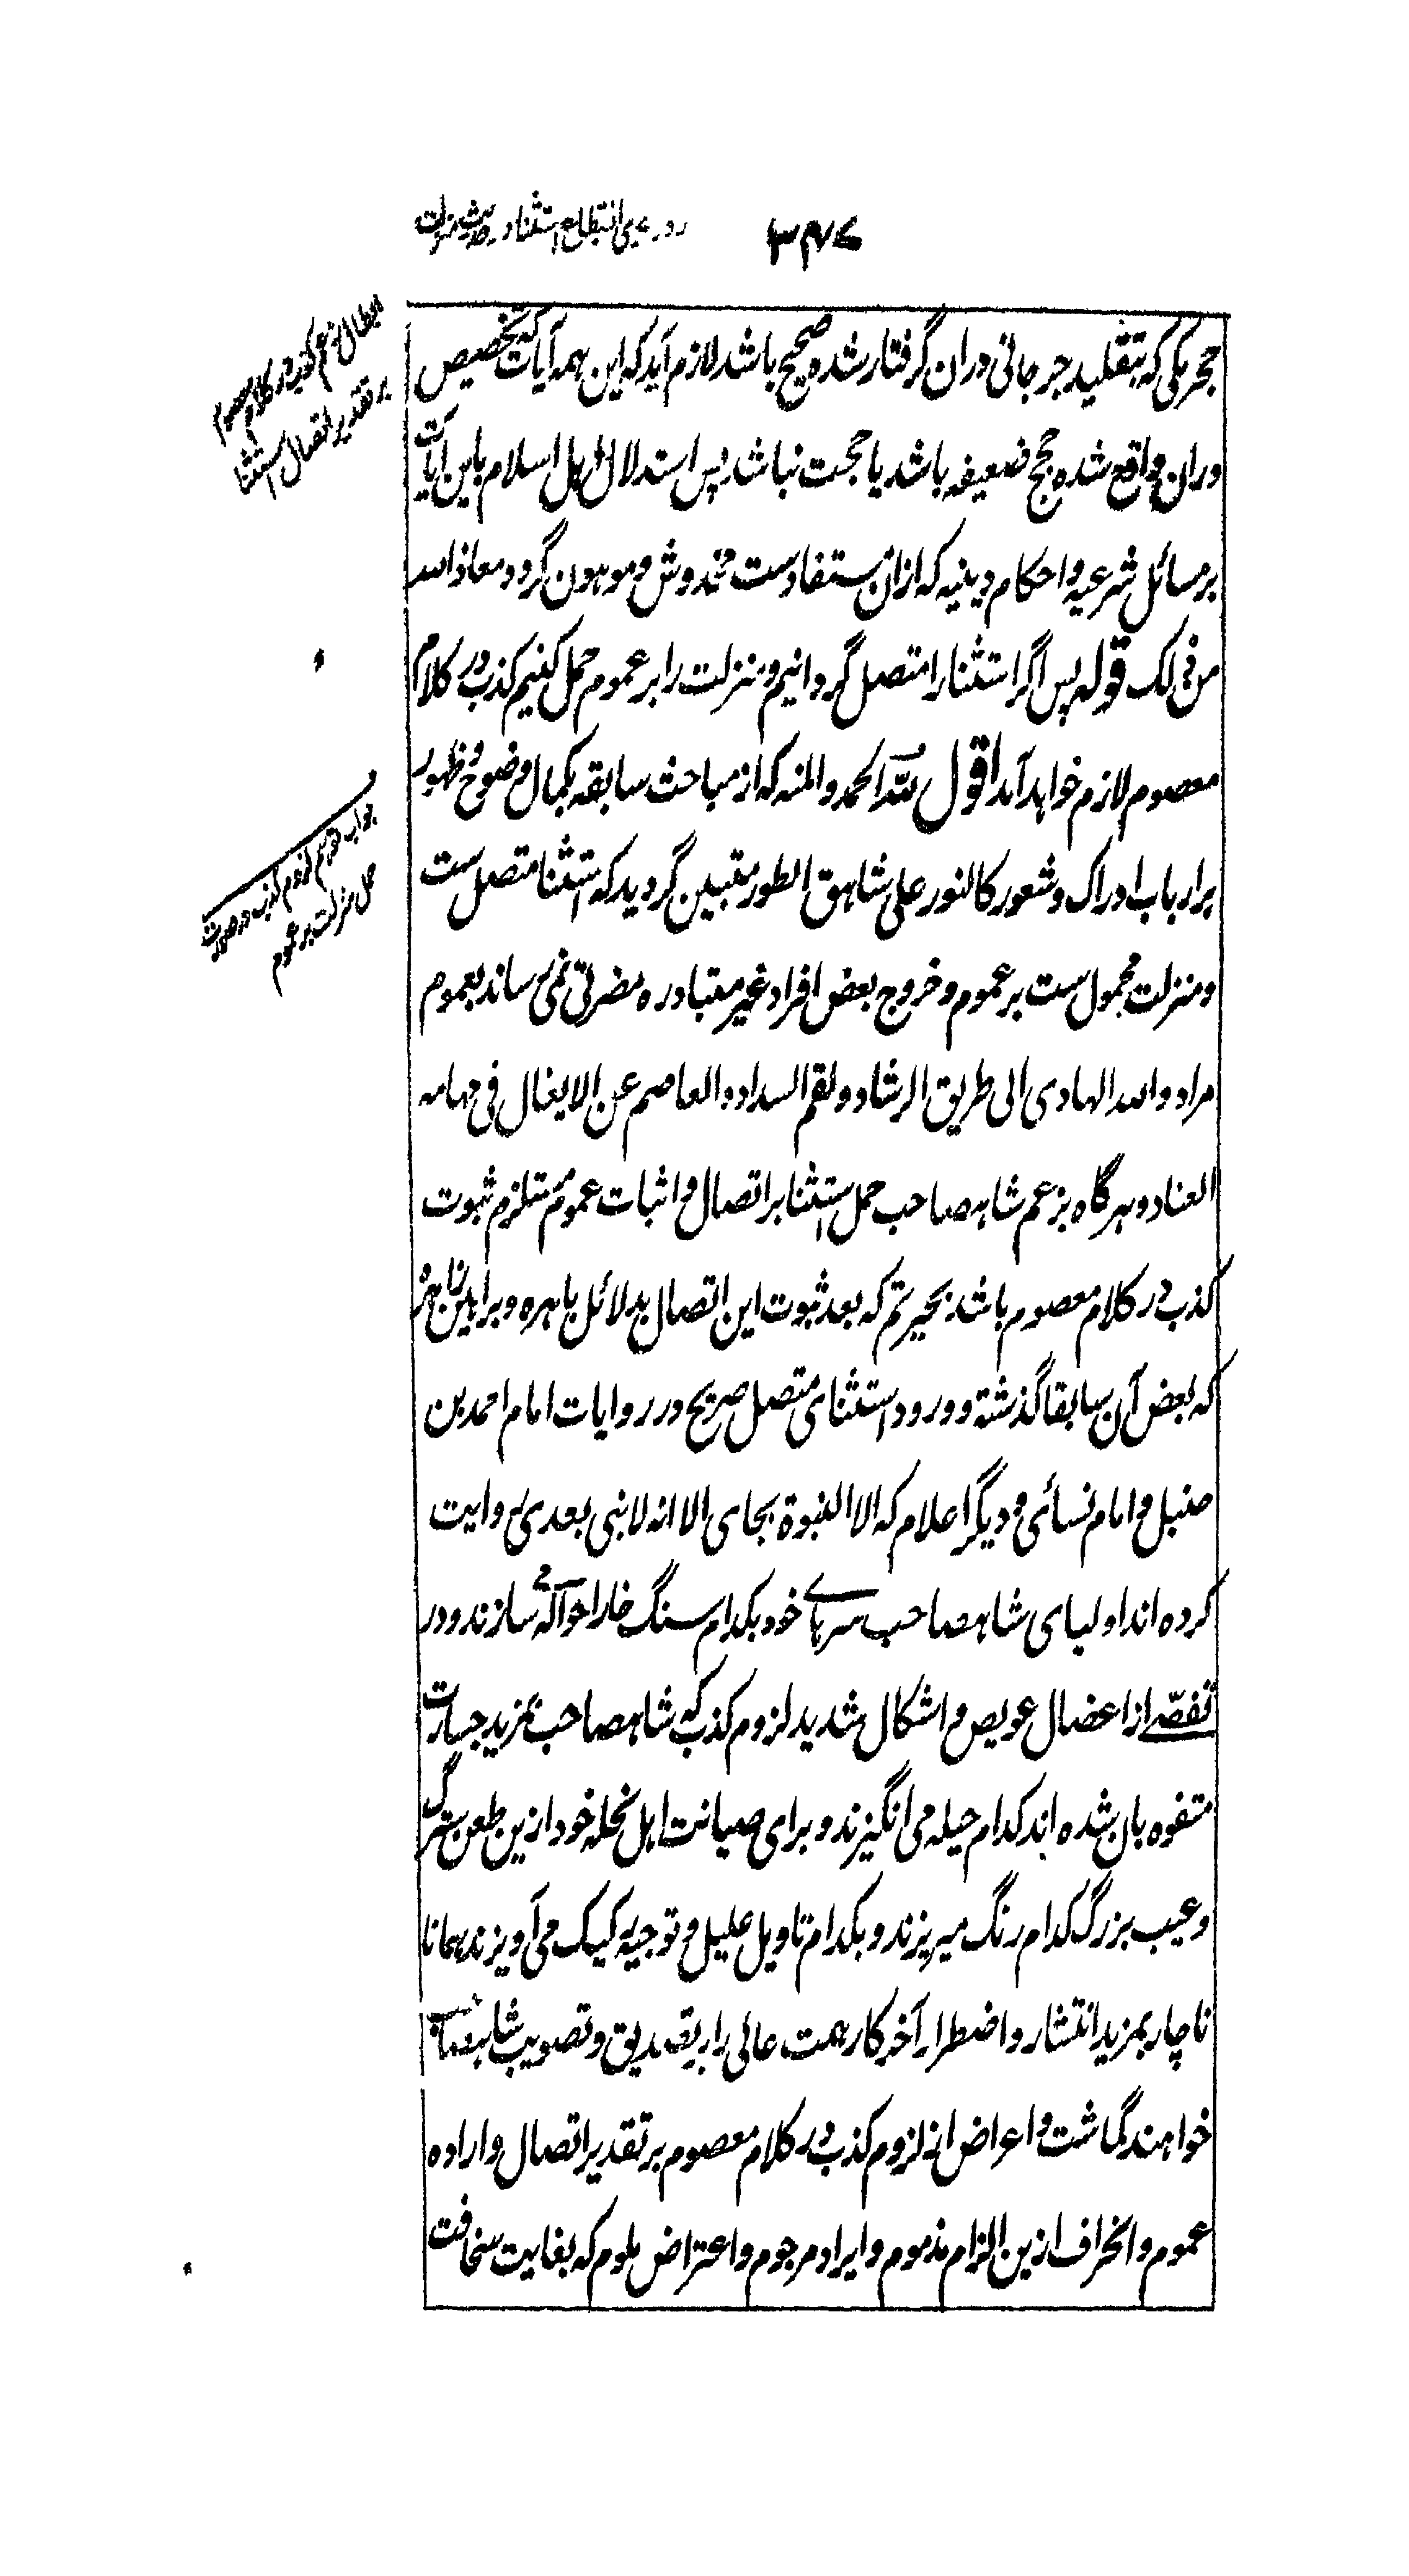 ۳۴۷
رد دعوی انقطاع استثنا در حدیث منزلت
حجر مکی که بتقلید جرجانی دران گرفتار شده صحیح باشد لازم آید که این همه آیات که تخصیص
دران واقع شده حجج ضعیفه باشد یا حجت نباشد پس استدلال اهل اسلام باین آیات
بر مسائل شرعیه و احکام دینیه که ازان مستفادست مخدوش و موهون گردد معاذ الله
من ذلک قوله پس اگر استثنا را متصل گردانیم و منزلت را بر عموم حمل کنیم کذب در کلام
معصوم لازم خواهد آمد اقول لله الحمد و المنه که از مباحث سابقه بکمال وضوح و ظهور
بر ارباب ادراک و شعور کالنور علی شاهق الطور متبین گردید که استثنا متصل ست
و منزلت محمول ست بر عموم و خروج بعض افراد غیر متبادره مضرتی نمی رساند بعموم
مراد و الله الهادی الی طریق الرشاد و لقم السداد و العاصم عن الایغال فی مهامه
العناد و هرگاه بزعم شاهصاحب حمل استثنا بر اتصال و اثبات عموم مستلزم ثبوت
کذب در کلام معصوم باشد بحیرتم که بعد ثبوت این اتصال بدلائل باهره و براهین زاهره
که بعض آن سابقا گذشته و ورود استثنای متصل صریح در روایات امام احمد بن
حنبل و امام نسائی و دیگر اعلام که الا النبوة بجای الا انه لا نبی بعدی روایت
کرده اند اولیای شاهصاحب سرهای خود بکدام سنگ خارا حواله سازند و در
تفصّی از اعضال عویص و اشکال شدید لزوم کذب که شاهصاحب بمزید جسارت
متفوه بان شده اند کدام حیله می انگیزند و برای صیانت اهل نحله خود ازین طعن سترگ
و عیب بزرگ کدام رنگ میریزند و بکدام تاویل علیل و توجیه رکیک می آویزند همانا
ناچار بمزید انتشار و اضطرار آخر کار همت عالی را بتصدیق و تصویب شاهصاحب
خواهند گماشت و اعراض از لزوم کذب در کلام معصوم بر تقدیر اتصال و اراده
عموم و انحراف ازین الزام مذموم و ایراد مرجوم و اعتراض ملوم که بغایت سخافت
ابطال زعم کذب در کلام معصوم
بر تقدیر اتصال استثنا
جواب توهم لزوم کذب در صورت
حمل منزلت بر عموم